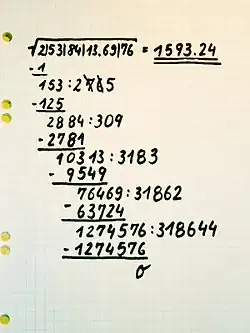 √2|53|84|13,69|76 = 1593.24
-1
153:2x5
-125
2884:309
-2781
10313:3183
- 9549
76469:31862
- 63724
1274576:318644
- 1274576
0